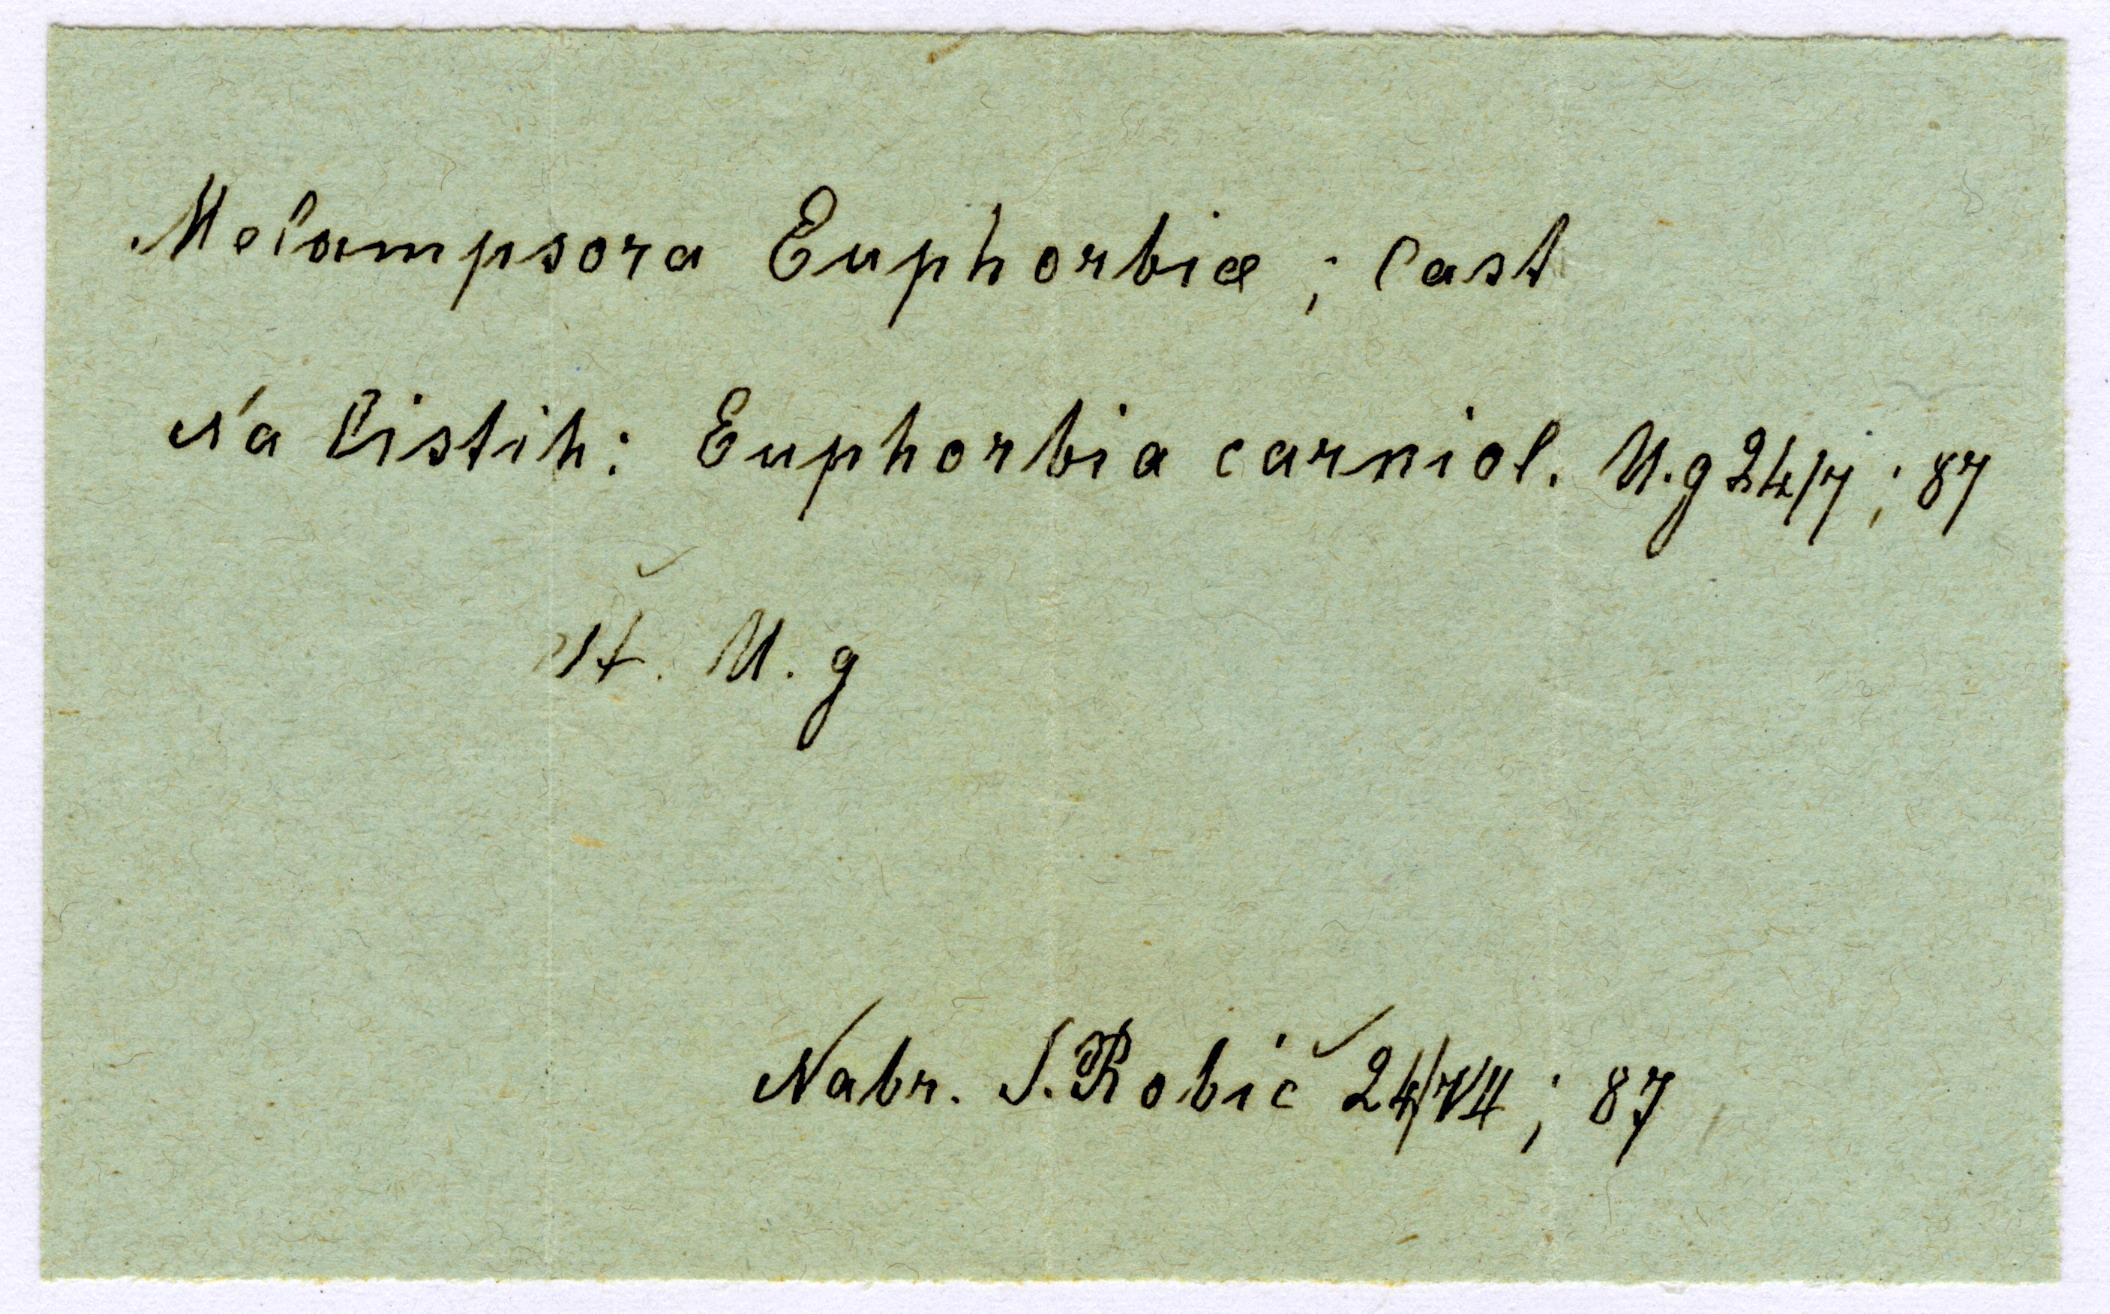 Melampsora Euphorbiæ; Cast
Na listih: Euphorbia carniol. U.g 24/7; 87
U. g
Nabr. S. Robič 24/74; 87